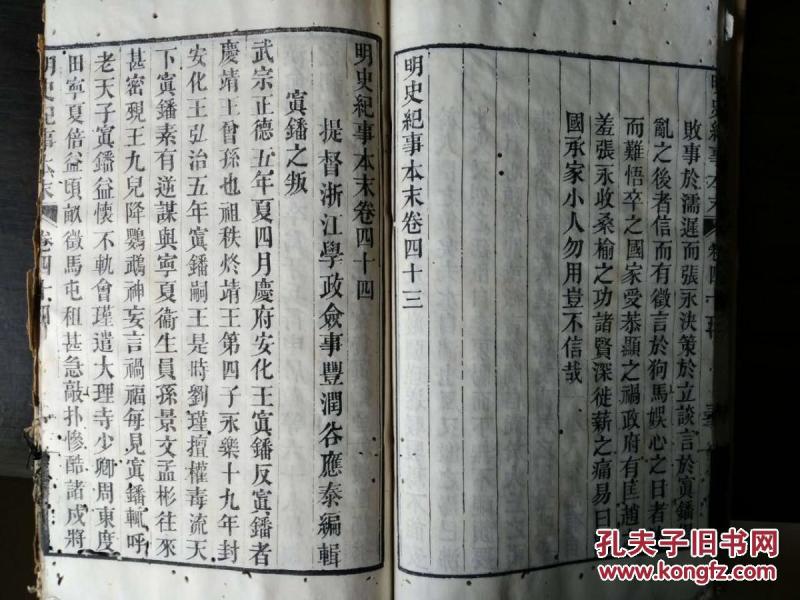 敗事於濡遲而張永決策於立談言於寘鐇
亂之後者信而有徵言於狗馬娛心之日者
而難悟卒之國家受恭顯之禍政府有匡趙
羞張永收桑榆之功諸賢深徙薪之痛易曰
國承家小人勿用豈不信哉
明史紀事本末卷四十三
明史紀事本末卷四十四
提督浙江學政僉事豐潤谷應泰編輯
寘鐇之叛
武宗正德五年夏四月慶府安化王寘鐇反寘鐇者
慶靖王曾孫也祖秩炵靖王第四子永樂十九年封
安化王弘治五年寘鐇嗣王是時劉瑾擅權毒流天
下寘鐇素有逆謀與寧夏衞生員孫景文孟彬往來
甚密覡王九兒降鸚鵡神妄言禍福每見寘鐇輒呼
老天子寘鐇益懷不軌會瑾遣大理寺少卿周東度
田寧夏倍益頃畝徵馬屯租甚急敲扑慘酷諸戍將
明史紀事本末
卷四十四
孔夫子旧书网
www.kongfz.com